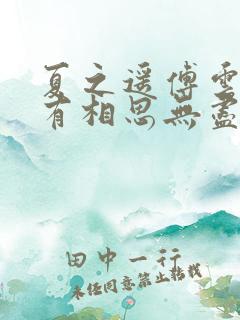 夏之遥傅雲
有相思無盡
田中一行
未經同意禁止轉載